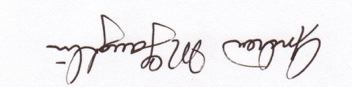 Andrea McLaughlin